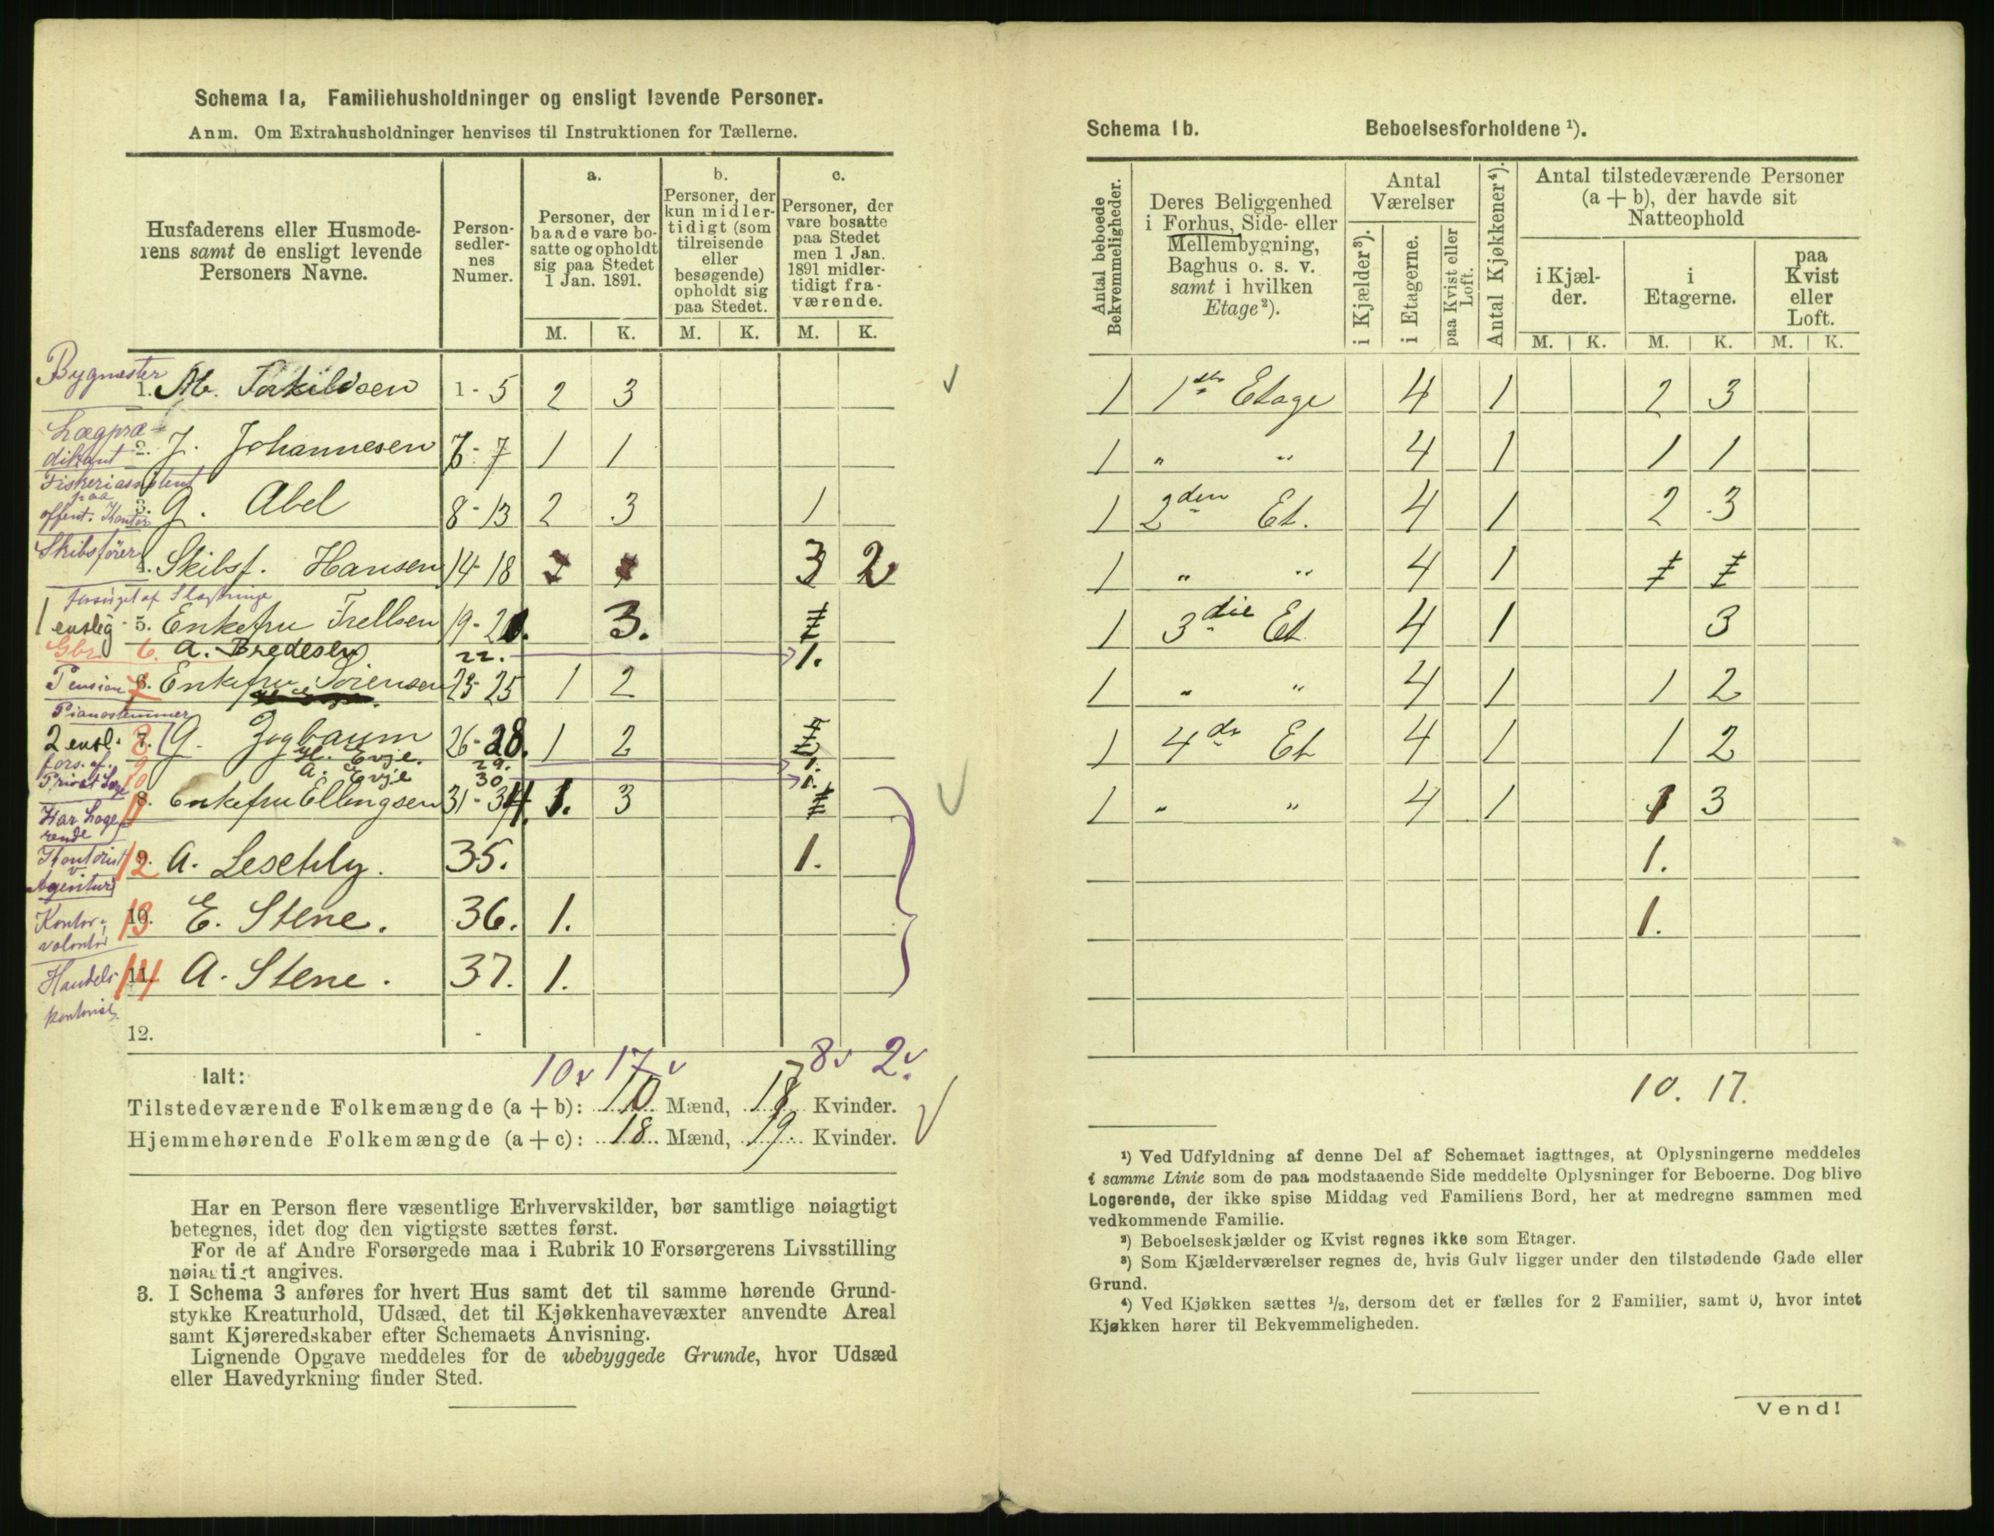 Schema 1a, Familiehusholdninger og ensligt levende Personer.
Anm. Om Extrahusholdninger henvises til Instruktionen for Tællerne.
Husfaderens eller Husmoderens samt de ensligt levende Personers Navne.
Personsedlernes Numer.
a. Personer, der baade vare bosatte og opholdt sig paa Stedet 1 Jan. 1891.
b. Personer, der kun midlertidigt (som tilreisende eller besøgende) opholdt sig paa Stedet.
c. Personer, der vare bosatte paa Stedet men 1 Jan. 1891 midlertidigt fraværende.
M. K. M. K. M. K.
Bygmester
1. M. Torkildsen 1-5 2 3
Lægprædikant
2. J. Johannesen 6-7 1 1
Fiskeriassistent paa offent. Kontor
3. G. Abel 8-13 2 3 1
Skibsfører
4. Skibsf. Hansen 14-18 3 2
forsørget af Slægtninge
1 enslig 5. Enkefru Trellsen 19-21. 3.
6. A. Bredesen 22. 1.
Pension 7 6. Enkefru Sørensen 23-25 1 2
Pianostemmer
2 ensl. 8 7. G. Zogbaum 26-28. 1 2
fors. af 9 H. Evje. 29. 1.
Privat 10 A. Evje 30. 1.
11 8. Enkefru Ellingsen 31-34. 1. 3
Har Logerende
Kontorist v. Agentur 12 9. A. Leschly. 35. 1.
Kontorvolontør 13 10. E. Stene. 36. 1.
Handelskontorist 14 11. A. Stene. 37. 1.
12.
10 v 17 v 8 v 2 v.
Ialt:
Tilstedeværende Folkemængde (a + b): 10 Mænd, 17 Kvinder.
Hjemmehørende Folkemængde (a + c): 18 Mænd, 19 Kvinder.
Har en Person flere væsentlige Erhvervskilder, bør samtlige nøiagtigt
betegnes, idet dog den vigtigste sættes først.
For de af Andre Forsørgede maa i Rubrik 10 Forsørgerens Livsstilling
nøiagtigt angives.
3. I Schema 3 anføres for hvert Hus samt det til samme hørende Grund-
stykke Kreaturhold, Udsæd, det til Kjøkkenhavevæxter anvendte Areal
samt Kjøreredskaber efter Schemaets Anvisning.
Lignende Opgave meddeles for de ubebyggede Grunde, hvor Udsæd
eller Havedyrkning finder Sted.
Schema 1b. Beboelsesforholdene ¹).
Antal beboede Bekvemmeligheder.
Deres Beliggenhed i Forhus, Side- eller Mellembygning, Baghus o. s. v. samt i hvilken Etage²).
Antal Værelser
i Kjælder³).
i Etagerne.
paa Kvist eller Loft.
Antal Kjøkkener⁴).
Antal tilstedeværende Personer (a + b), der havde sit Natteophold
i Kjælder.
i Etagerne.
paa Kvist eller Loft.
M. K. M. K. M. K.
1 1ste Etage 4 1 2 3
1 " " 4 1 1 1
1 2den Et. 4 1 2 3
1 " " 4 1
1 3die Et 4 1 3
1 " " 4 1 1 2
1 4de Et 4 1 1 2
1 " " 4 1 1 3
1.
1.
10. 17.
¹) Ved Udfyldning af denne Del af Schemaet iagttages, at Oplysningerne meddeles
i samme Linie som de paa modstaaende Side meddelte Oplysninger for Beboerne. Dog blive
Logerende, der ikke spise Middag ved Familiens Bord, her at medregne sammen med
vedkommende Familie.
²) Beboelseskjælder og Kvist regnes ikke som Etager.
³) Som Kjælderværelser regnes de, hvis Gulv ligger under den tilstødende Gade eller
Grund.
⁴) Ved Kjøkken sættes ½, dersom det er fælles for 2 Familier, samt 0, hvor intet
Kjøkken hører til Bekvemmeligheden.
Vend!